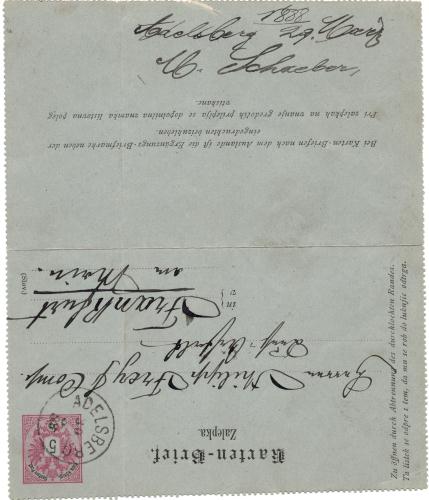 1888
Adelsberg 29. März
M. Schaeber,
Bei Karten-Briefen nach dem Auslande ist die Ergänzungs-Briefmarke neben der
eingedruckten beizukleben.
Pri zalepkah na vnanje gredočih prilepljá se dopolnilna znamka listovna poleg
vtiskane.
Karten-Brief.
Zalepka.
5
ADELSBERG
Herrn Philipp Frey & Comp.
in
v
Frankfurt
am Main.
(Slov.)
Zu öffnen durch Abtrennung des durchlochten Randes.
Tu listek se odpre s tem, da mu se rob do luknjic odtrga.